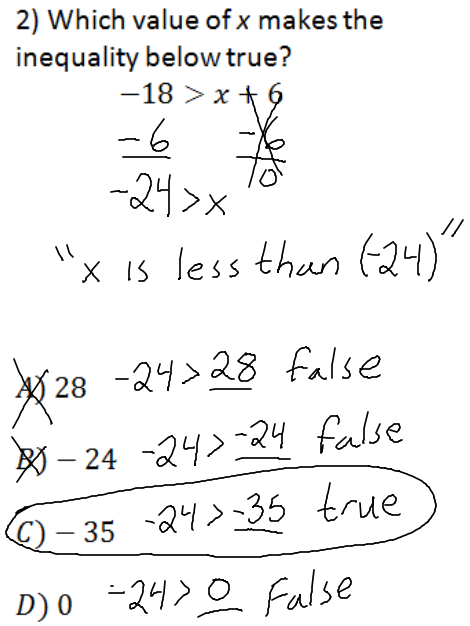 2) Which value of x makes the
inequality below true?
−18 > x + 6
−6 −6
−24 > x 0
"x is less than (−24)"
A) 28 −24 > 28 false
B) − 24 −24 > −24 false
C) − 35 −24 > −35 true
D) 0 −24 > 0 False